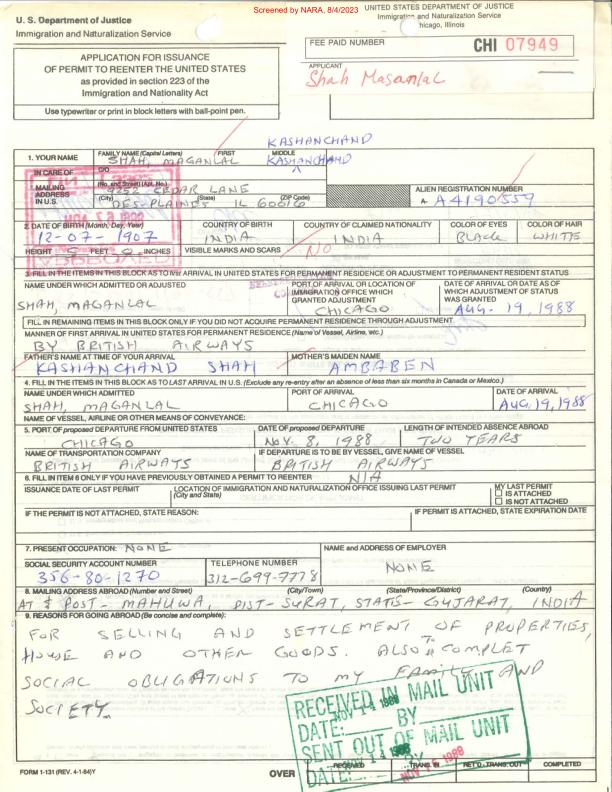 Screened by NARA, 8/4/2023
UNITED STATES DEPARTMENT OF JUSTICE
Immigration and Naturalization Service
Chicago, Illinois
U. S. Department of Justice
Immigration and Naturalization Service
FEE PAID NUMBER
CHI 07949
APPLICANT
Shah Maganlal
APPLICATION FOR ISSUANCE
OF PERMIT TO REENTER THE UNITED STATES
as provided in section 223 of the
Immigration and Nationality Act
Use typewriter or print in block letters with ball-point pen.
KASHANCHAND
1. YOUR NAME FAMILY NAME (Capital Letters) FIRST MIDDLE
SHAH, MAGANLAL KASHANCHAND
IN CARE OF C/O
MAILING ADDRESS IN U.S. (No. and Street) (Apt. No.)
9252 CEDAR LANE
(City) (State) (ZIP Code)
DES-PLAINES IL 60016
ALIEN REGISTRATION NUMBER
A- A4190559
2. DATE OF BIRTH (Month, Day, Year) COUNTRY OF BIRTH COUNTRY OF CLAIMED NATIONALITY COLOR OF EYES COLOR OF HAIR
12-07-1907 INDIA INDIA BLACK WHITE
HEIGHT 5 FEET 0 INCHES VISIBLE MARKS AND SCARS NO
3. FILL IN THE ITEMS IN THIS BLOCK AS TO first ARRIVAL IN UNITED STATES FOR PERMANENT RESIDENCE OR ADJUSTMENT TO PERMANENT RESIDENT STATUS
NAME UNDER WHICH ADMITTED OR ADJUSTED PORT OF ARRIVAL OR LOCATION OF IMMIGRATION OFFICE WHICH GRANTED ADJUSTMENT DATE OF ARRIVAL OR DATE AS OF WHICH ADJUSTMENT OF STATUS WAS GRANTED
SHAH, MAGANLAL CHICAGO AUG. 19, 1988
FILL IN REMAINING ITEMS IN THIS BLOCK ONLY IF YOU DID NOT ACQUIRE PERMANENT RESIDENCE THROUGH ADJUSTMENT
MANNER OF FIRST ARRIVAL IN UNITED STATES FOR PERMANENT RESIDENCE (Name of Vessel, Airline, etc.)
BY BRITISH AIRWAYS
FATHER'S NAME AT TIME OF YOUR ARRIVAL MOTHER'S MAIDEN NAME
KASHANCHAND SHAH AMBABEN
4. FILL IN THE ITEMS IN THIS BLOCK AS TO LAST ARRIVAL IN U.S. (Exclude any re-entry after an absence of less than six months in Canada or Mexico.)
NAME UNDER WHICH ADMITTED PORT OF ARRIVAL DATE OF ARRIVAL
SHAH, MAGANLAL CHICAGO AUG, 19, 1988
NAME OF VESSEL, AIRLINE OR OTHER MEANS OF CONVEYANCE:
5. PORT OF proposed DEPARTURE FROM UNITED STATES DATE OF proposed DEPARTURE LENGTH OF INTENDED ABSENCE ABROAD
CHICAGO NOV. 8, 1988 TWO YEARS
NAME OF TRANSPORTATION COMPANY IF DEPARTURE IS TO BE BY VESSEL, GIVE NAME OF VESSEL
BRITISH AIRWAYS BRITISH AIRWAYS
6. FILL IN ITEM 6 ONLY IF YOU HAVE PREVIOUSLY OBTAINED A PERMIT TO REENTER N/A
ISSUANCE DATE OF LAST PERMIT LOCATION OF IMMIGRATION AND NATURALIZATION OFFICE ISSUING LAST PERMIT (City and State) MY LAST PERMIT
IS ATTACHED
IS NOT ATTACHED
IF THE PERMIT IS NOT ATTACHED, STATE REASON: IF PERMIT IS ATTACHED, STATE EXPIRATION DATE
7. PRESENT OCCUPATION: NONE NAME and ADDRESS OF EMPLOYER
SOCIAL SECURITY ACCOUNT NUMBER TELEPHONE NUMBER NONE
356-80-1270 312-699-7778
8. MAILING ADDRESS ABROAD (Number and Street) (City/Town) (State/Province/District) (Country)
AT & POST- MAHUWA, DIST- SURAT, STATE- GUJARAT, INDIA
9. REASONS FOR GOING ABROAD (Be concise and complete):
FOR SELLING AND SETTLEMENT OF PROPERTIES,
HOUSE AND OTHER GOODS. ALSO TO COMPLET
SOCIAL OBLIGATIONS TO MY FAMILY AND
SOCIETY.
RECEIVED IN MAIL UNIT
NOV 14 1988
DATE: BY
SENT OUT OF MAIL UNIT
14 1988
DATE: BY
NOV 15 1988
FORM I-131 (REV. 4-1-84)Y OVER RECEIVED TRANS. IN RET'D - TRANS. OUT COMPLETED